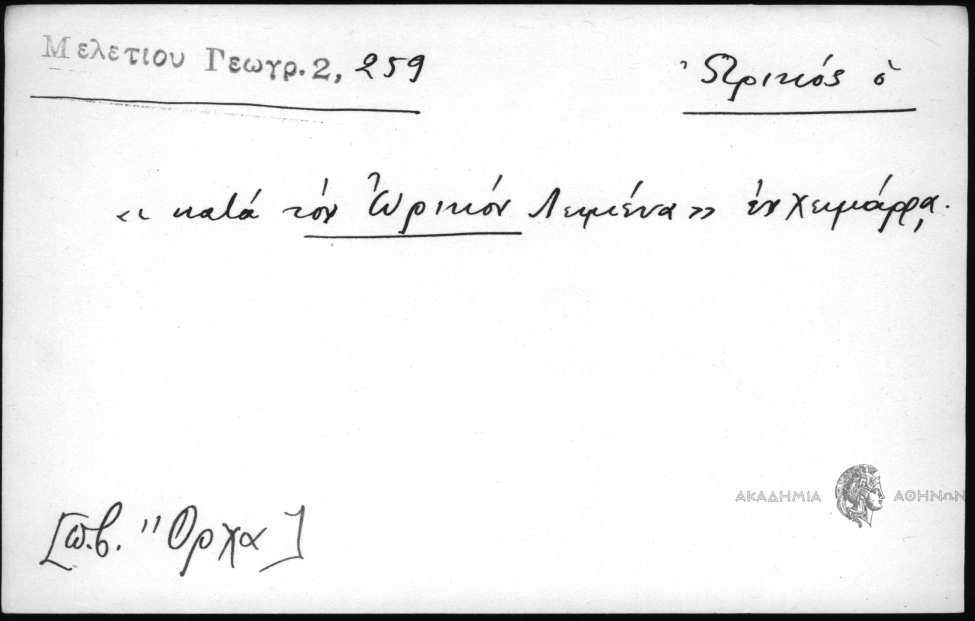 Μελετίου Γεωγρ. 2, 259
Ὠρικός ὁ
« κατά τόν Ὠρικόν Λειμένα » ἐν Χειμάρρᾳ.
ΑΚΑΔΗΜΙΑ ΑΘΗΝΩΝ
[π.β. Ὄρχα]